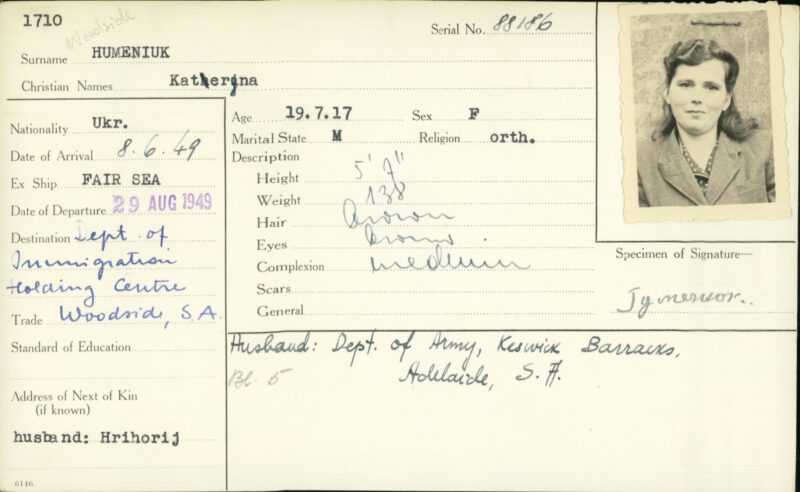 1710
Woodside
Serial No. 88186
Surname HUMENIUK
Christian Names Katherjna
Nationality Ukr.
Date of Arrival 8.6.49
Ex Ship FAIR SEA
Date of Departure 29 AUG 1949
Destination Dept of
Immigration
Holding Centre
Woodside, S.A.
Trade
Standard of Education
Address of Next of Kin
(if known)
husband: Hrihorij
6146
Age 19.7.17 Sex F
Marital State M Religion orth.
Description
Height 5' 9"
Weight 138
Hair Brown
Eyes brown
Complexion medium
Scars
General
Specimen of Signature—
Husband: Dept. of Army, Keswick Barracks,
Adelaide, S.A.
Bl. 5